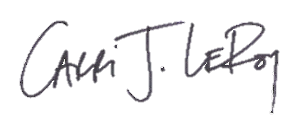 Carri J. LeRoy